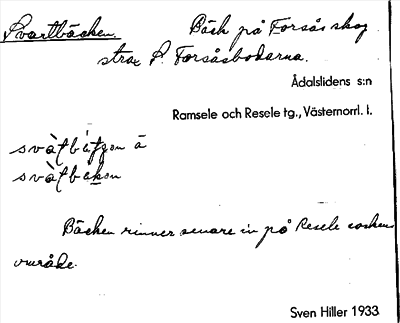 Svartbäcken. Bäck på Forsås skog
strax S. Forsåsbodarna.
Ådalslidens s:n
Ramsele och Resele tg., Västernorrl. l.
Bäcken rinner senare in på Resele sockens
område.
Sven Hiller 1933